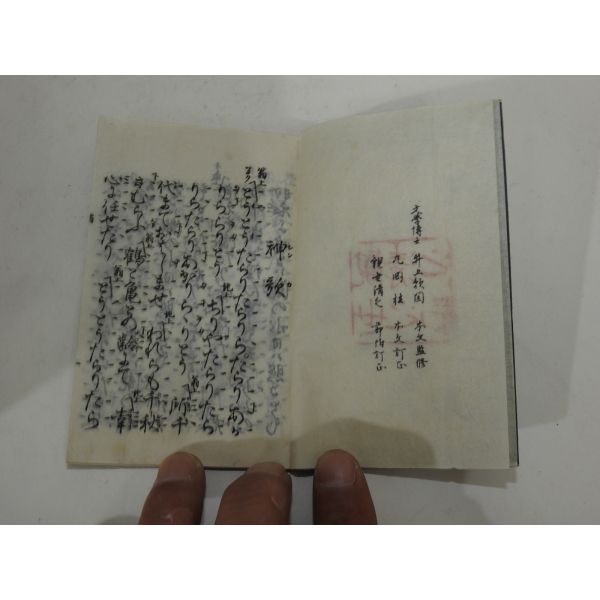 文學博士 井上頼圀 本文監修
丸岡桂 本文訂正
観世清之 節附訂正
神歌
シン カ
翁上
とうとうたらりたらりら。たらりあがりららりとう
地上
ちりやたらりたらりら。たらりあがりららりとう
翁
所千代までおはしませ
地上
われらも千秋さむらふ
翁
鶴と亀との齢にて
地
幸心に任せたり
とうとうたらりたらりら